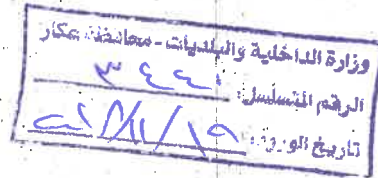 وزارة الداخلية والبلديات - محافظة عكار
الرقم المتسلسل:
تاريخ الورود: